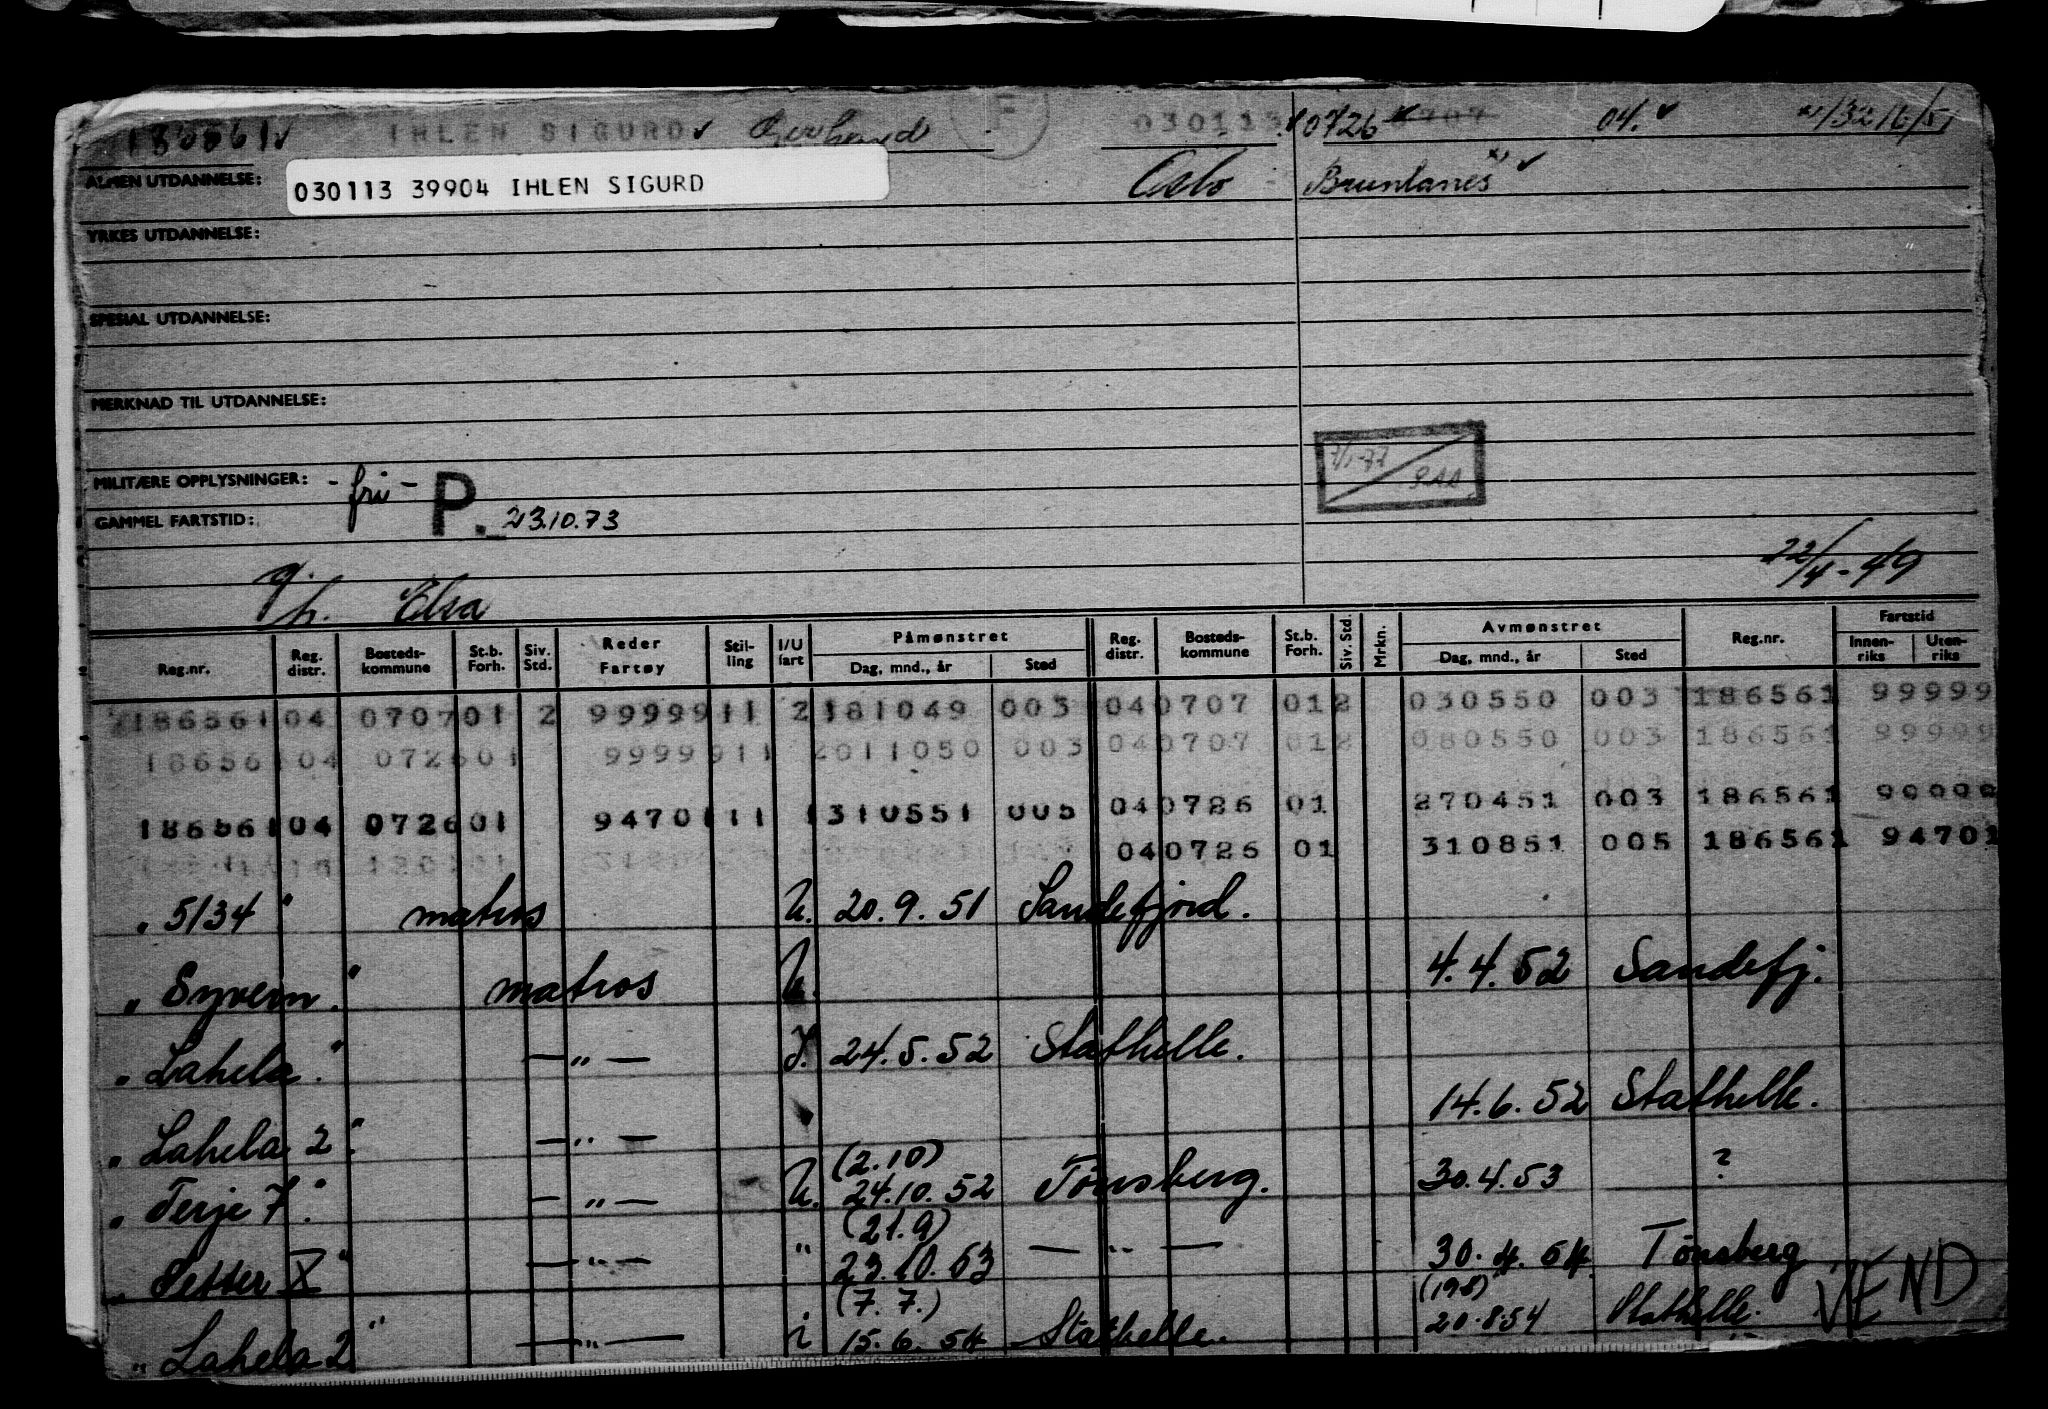 IHLEN SIGURD F 030113 0726 04.
ALMEN UTDANNELSE: 030113 39904 IHLEN SIGURD Oslo Brunlanes
YRKES UTDANNELSE:
SPESIAL UTDANNELSE:
MERKNAD TIL UTDANNELSE:
MILITÆRE OPPLYSNINGER: - fri - P.
GAMMEL FARTSTID: 23.10.73
g.
h. Elsa 22/4-49
Reg.nr. Reg. distr. Bosteds- kommune St.b. Forh. Siv. Std. Reder Fartøy Stil- ling I/U fart Påmønstret Dag, mnd., år Sted Reg. distr. Bosteds- kommune St.b. Forh. Siv. Std. Mrkn. Avmønstret Dag, mnd., år Sted Reg.nr. Fartstid Innen- riks Uten- riks
186561 04 0707 01 2 99999 11 2 181049 003 04 0707 01 2 030550 003 186561 99999
186561 04 0726 01 99999 11 2 011050 003 04 0707 01 2 080550 003 186561 99999
04 0726 01 270451 003 186561 99999
186561 04 0726 01 94701 11 1 310551 005
04 0726 01 310851 005 186561 94701
" 5134 " matros U. 20.9.51 Sandefjord.
" Syvern." matros U. 4.4.52 Sandefj.
" Lahela." — " — I. 24.5.52 Stathelle.
" Lahela 2." — " — 14.6.52 Stathelle.
(2.10)
" Terje 7." — " — U. 24.10.52 Tönsberg. 30.4.53 ?
(21.9)
" Petter X " — " — " 23.10.53 — " — 30.4.54. Tönsberg
(7.7.) (19.8) VEND
" Lahela 2 " — " — i 15.6.54 Stathelle. 20.8.54 Stathelle.